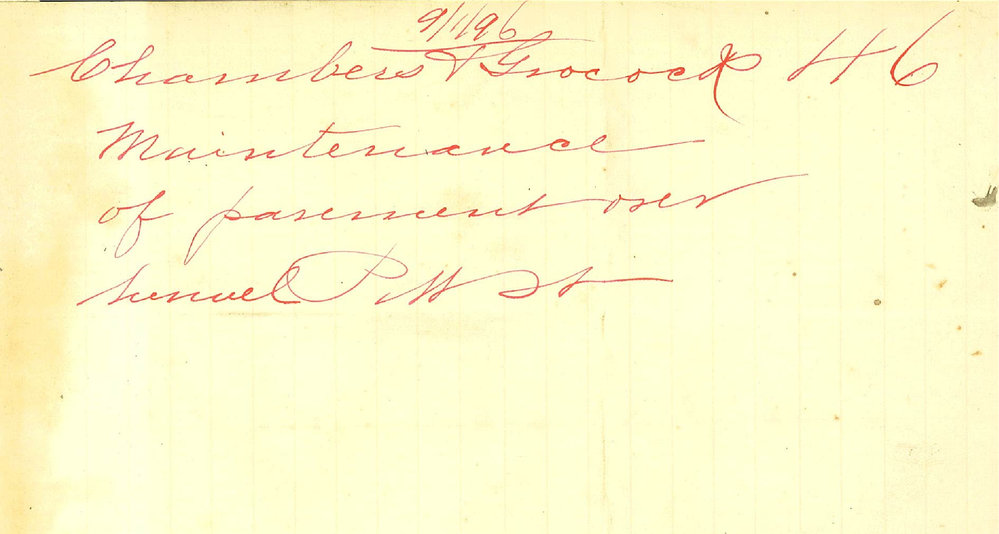 9/1/96
Chambers & Grocock 46
Maintenance
of pavement over
tunnel Pitt St